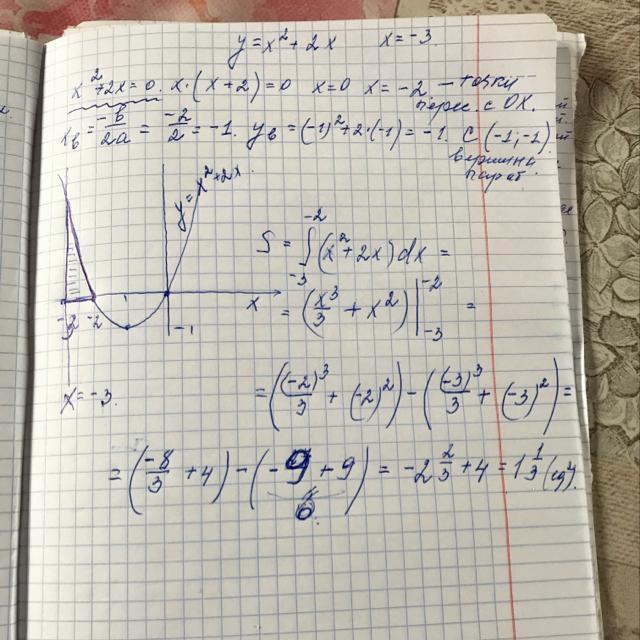 y = x² + 2x   x = -3.
x² + 2x = 0. x·(x + 2) = 0   x = 0   x = -2. — точки
перес. с OX.
xв = -b/2a = -2/2 = -1. yв = (-1)² + 2·(-1) = -1. C (-1; -1)
вершина
параб.
y = x² + 2x.
S = ∫₋₃⁻² (x² + 2x) dx =
x
-3 -2
-1
= (x³/3 + x²) |₋₃⁻² =
x = -3.
= ((-2)³/3 + (-2)²) - ((-3)³/3 + (-3)²) =
= (-8/3 + 4) - (-9 + 9) = -2 2/3 + 4 = 1 1/3 (ед²)
0